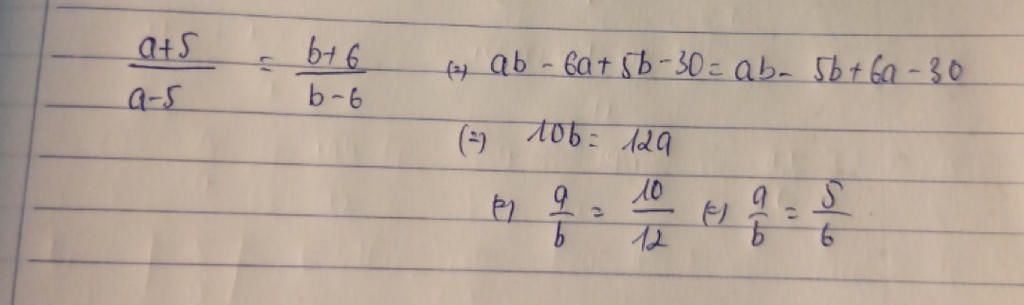 a+5/a-5 = b+6/b-6 (=) ab - 6a + 5b - 30 = ab - 5b + 6a - 30
(=) 10b = 12a
(=) a/b = 10/12 (=) a/b = 5/6